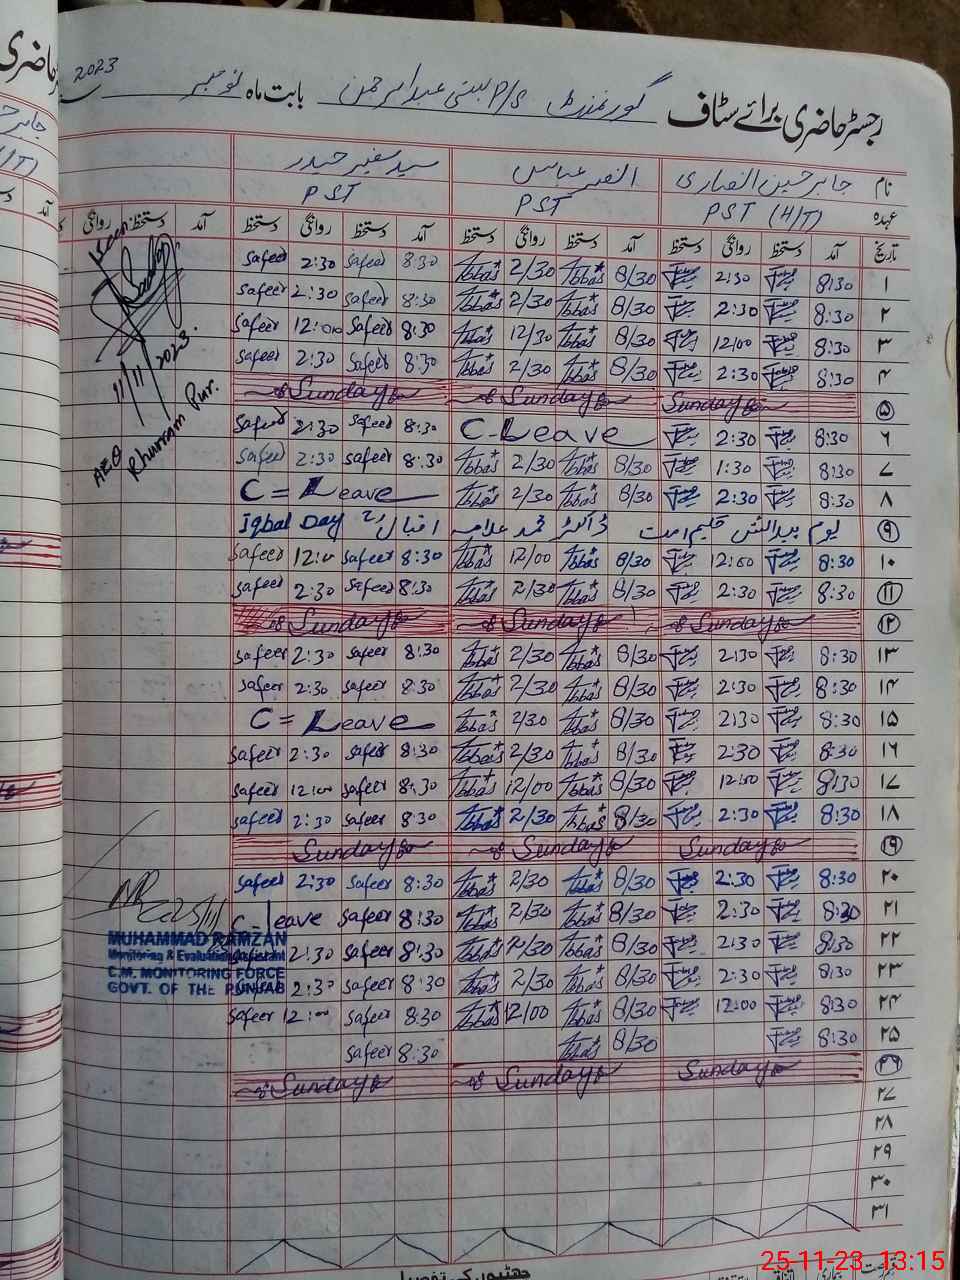 رجسٹر حاضری برائے سٹاف گورنمنٹ P/S بستی عبدالرحمن بابت ماہ نومبر 2023
نام جابر حسین انصاری عباس سید سفیر حیدر
عہدہ PST (H/T) PST PST
تاریخ آمد دستخط روانگی دستخط آمد دستخط روانگی دستخط آمد دستخط روانگی دستخط آمد دستخط روانگی
۱ 8:30 2:30 8/30 Abbas 2/30 Abbas 8:30 Safeer 2:30 Safeer
۲ 8:30 2:30 8/30 Abbas 2/30 Abbas 8:30 Safeer 2:30 Safeer
۳ 8:30 12:00 8/30 Abbas 12/30 Abbas 8:30 Safeer 12:00 Safeer
۴ 8:30 2:30 8/30 Abbas 2/30 Abbas 8:30 Safeer 2:30 Safeer
۵ Sunday Sunday Sunday
۶ 8:30 2:30 C-Leave 8:30 Safeer 2:30 Safeer
۷ 8:30 1:30 8/30 Abbas 2/30 Abbas 8:30 Safeer 2:30 Safeer
۸ 8:30 2:30 8/30 Abbas 2/30 Abbas C = Leave
۹ یوم پیدائش حکیم امت ڈاکٹر محمد علامہ اقبالؒ Iqbal Day
۱۰ 8:30 12:00 8/30 Abbas 12/00 Abbas 8:30 Safeer 12:00 Safeer
۱۱ 8:30 2:30 8/30 Abbas 2/30 Abbas 8:30 Safeer 2:30 Safeer
۱۲ Sunday Sunday Sunday
۱۳ 8:30 2:30 8/30 Abbas 2/30 Abbas 8:30 Safeer 2:30 Safeer
۱۴ 8:30 2:30 8/30 Abbas 2/30 Abbas 8:30 Safeer 2:30 Safeer
۱۵ 8:30 2:30 8/30 Abbas 2/30 Abbas C = Leave
۱۶ 8:30 2:30 8/30 Abbas 2/30 Abbas 8:30 Safeer 2:30 Safeer
۱۷ 8:30 12:00 8/30 Abbas 12/00 Abbas 8:30 Safeer 12:00 Safeer
۱۸ 8:30 2:30 8/30 Abbas 2/30 Abbas 8:30 Safeer 2:30 Safeer
۱۹ Sunday Sunday Sunday
۲۰ 8:30 2:30 8/30 Abbas 2/30 Abbas 8:30 Safeer 2:30 Safeer
۲۱ 8:30 2:30 8/30 Abbas 2/30 Abbas 8:30 Safeer C-leave
۲۲ 8:30 2:30 8/30 Abbas 2/30 Abbas 8:30 Safeer 2:30 Safeer
۲۳ 8:30 2:30 8/30 Abbas 2/30 Abbas 8:30 Safeer 2:30
۲۴ 8:30 12:00 8/30 Abbas 12/00 Abbas 8:30 Safeer 12:00 Safeer
۲۵ 8:30 8/30 Abbas 8:30 Safeer
۲۶ Sunday Sunday Sunday
۲۷
۲۸
۲۹
۳۰
۳۱
Seen
11/11/2023
AEO
Khurram Pur.
25/11
MUHAMMAD RAMZAN
Monitoring & Evaluation Assistant
C.M. MONITORING FORCE
GOVT. OF THE PUNJAB
چھٹیوں کی تفصیل
25-11-23 13:15